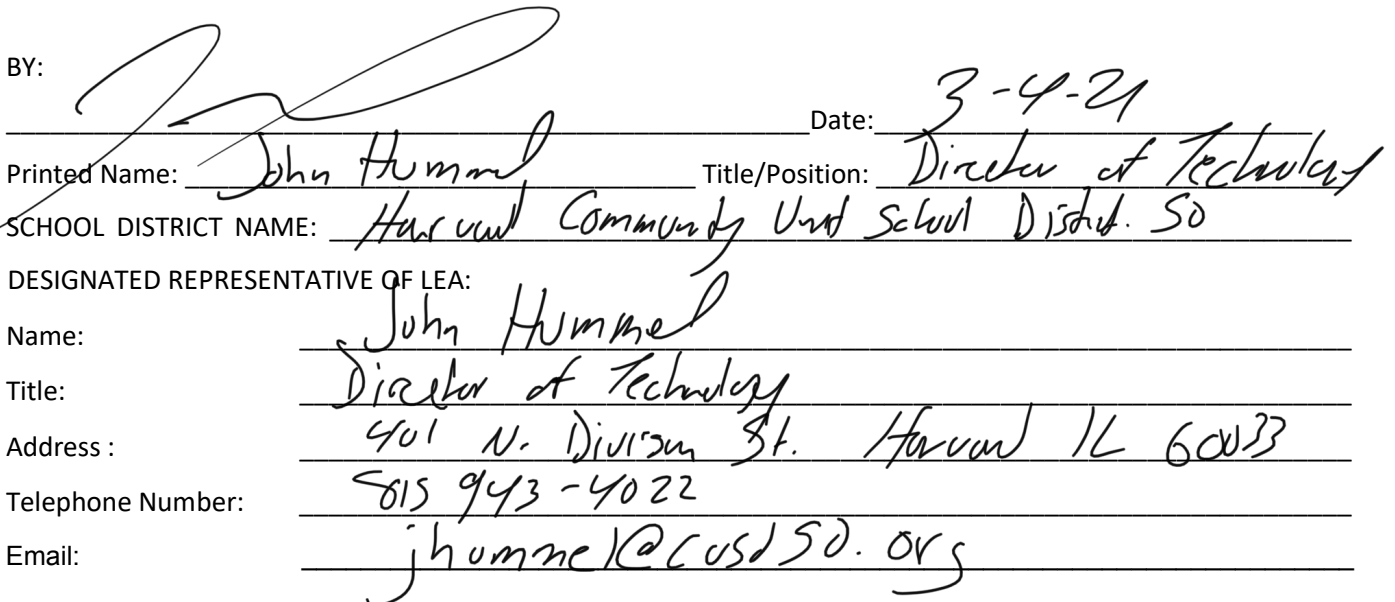 BY:
Date: 3-4-21
Printed Name: John Hummel Title/Position: Director of Technology
SCHOOL DISTRICT NAME: Harvard Community Unit School District 50
DESIGNATED REPRESENTATIVE OF LEA:
Name: John Hummel
Title: Director of Technology
Address : 401 N. Division St. Harvard IL 60033
Telephone Number: 815 943-4022
Email: jhummel@cusd50.org